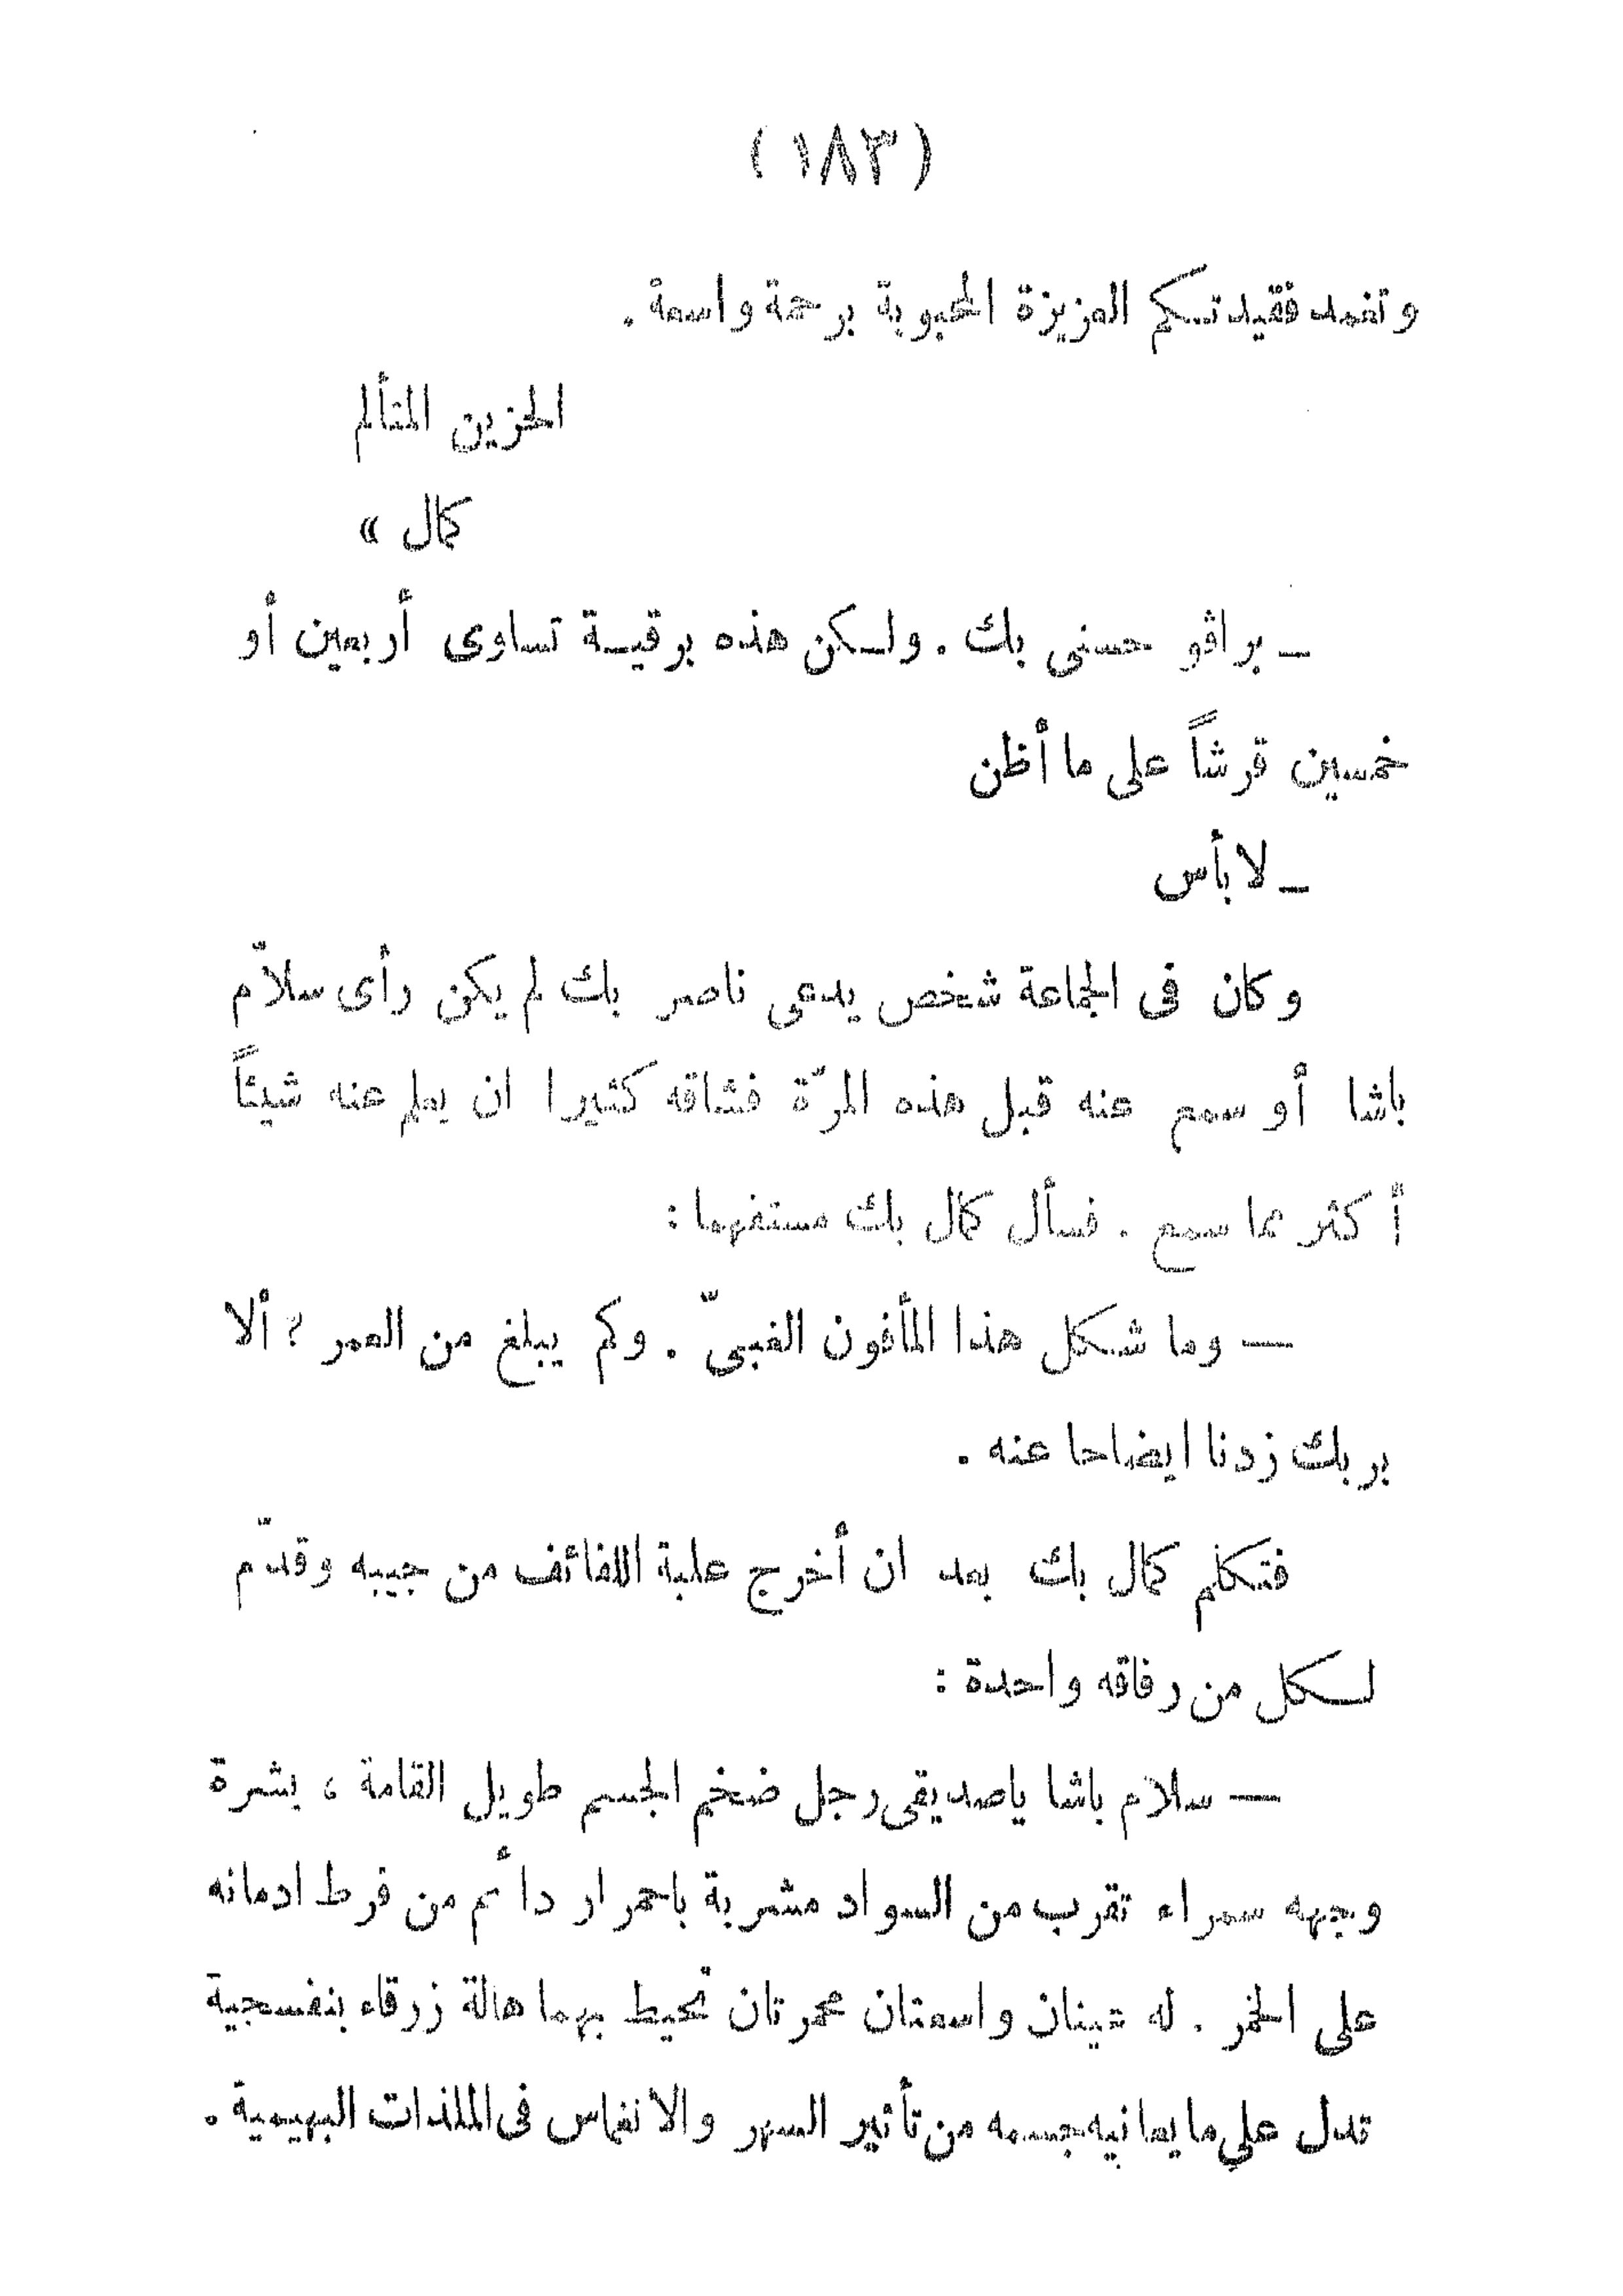 (١٨٣)
وتغمد فقيدتكم العزيزة المحبوبة برحمة واسعة .
الحزين المتألم
كمال »
ـ براڤو حسنى بك . ولكن هذه برقية تساوى أربعين أو
خمسين قرشاً على ما أظن
ـ لا بأس
وكان فى الجماعة شخص يدعى ناصر بك لم يكن رأى سلاّم
باشا أو سمع عنه قبل هذه المرّة فشاقه كثيرا ان يعلم عنه شيئاً
أكثر مما سمع . فسأل كمال بك مستفهما :
— وما شكل هذا المأفون الغبىّ . وكم يبلغ من العمر ؟ ألا
بربك زدنا ايضاحا عنه .
فتكلم كمال بك بعد ان أخرج علبة اللفائف من جيبه وقدّم
لكل من رفاقه واحدة :
— سلام باشا ياصديقى رجل ضخم الجسم طويل القامة ، بشرة
وجهه سمراء تقرب من السواد مشربة باحمرار دائم من فرط ادمانه
على الخمر . له عينان واسعتان محمرتان تحيط بهما هالة زرقاء بنفسجية
تدل على ما يعانيه جسمه من تأثير السهر والانغماس فى الملذات البهيمية .